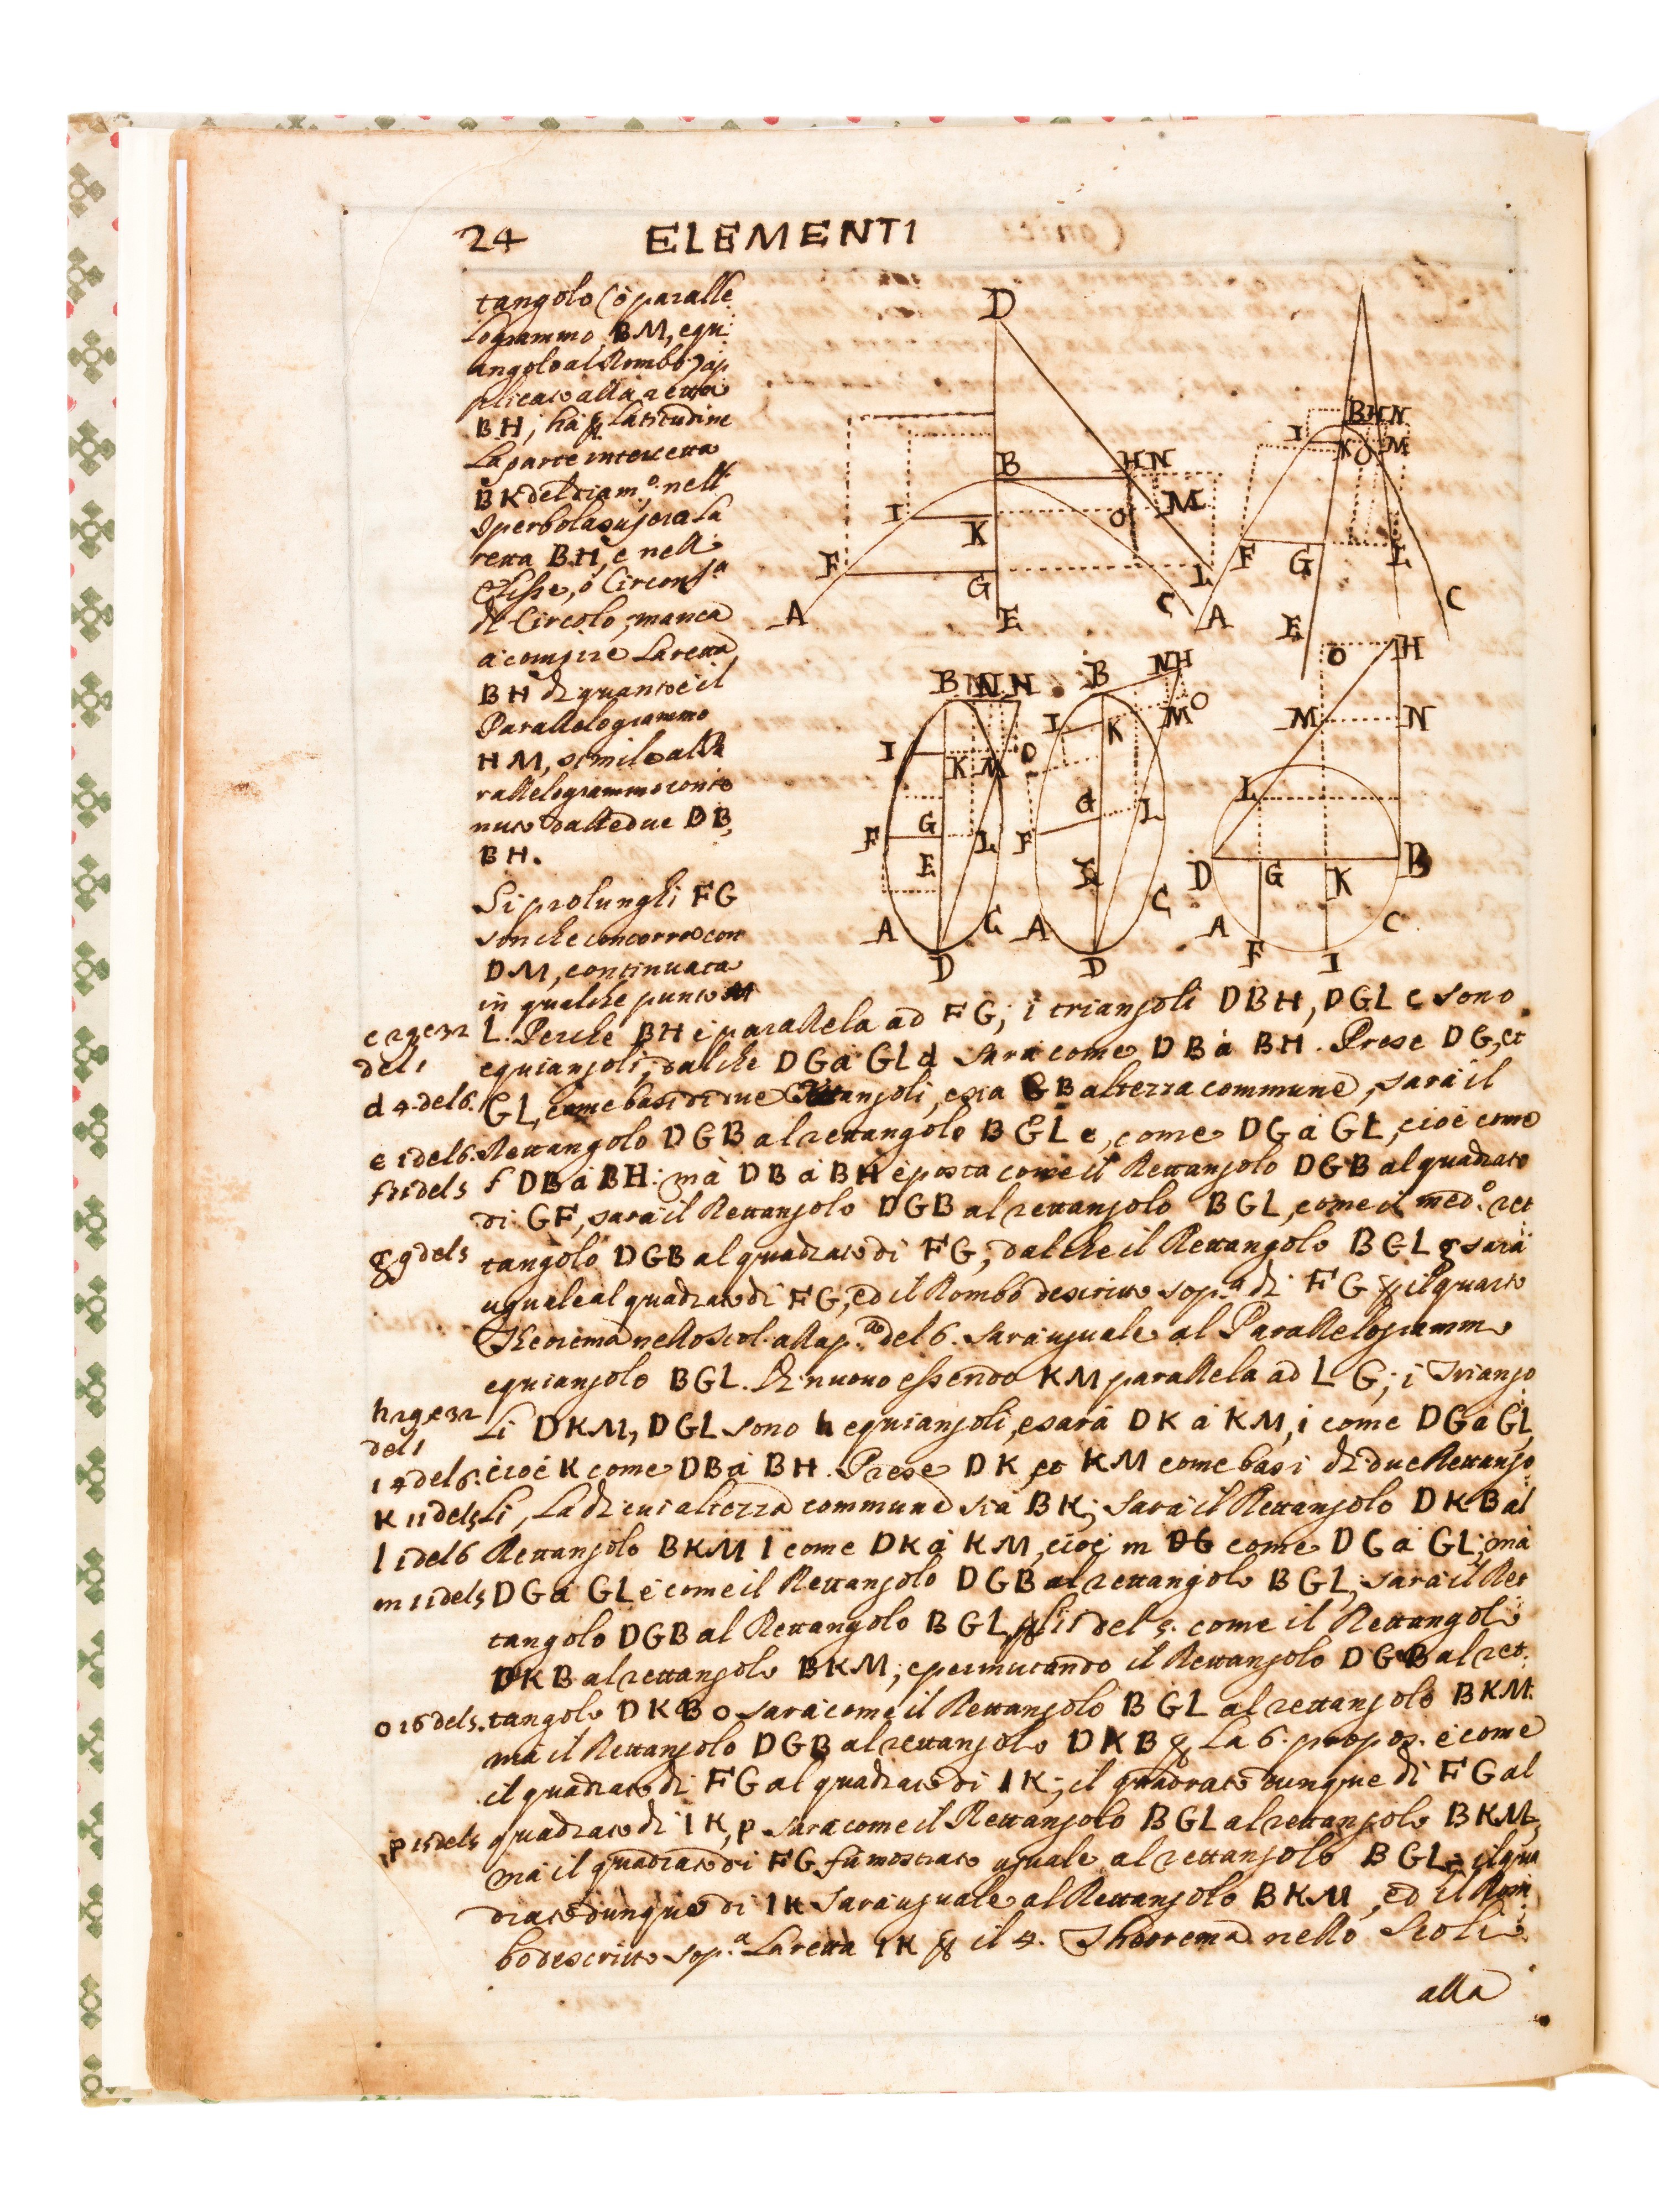 24 ELEMENTI
tangolo (ò paralle
logrammo BM, equi
angolo al Rombo) ap
plicato alla retta
BH, hà ꝑ Latitudine
La parte intercetta
BK del diam.o, nell'
Iperbola supera La
retta BH, e nell'
Elisse, ò Circonf.a
di Circolo, manca
à compire La retta
BH di quanto è il
Parallelogrammo
HM, simile al Pa
rallelogrammo conte
nuto dalle due DB,
BH.
Si prolunghi FG
sin che concorra con
DM, continuata
in qualche punto
D
B H N
I K O M
F G L
A E C
B H N
I K O M
F G L
A E C
B N H
I K M O
F G L
E
A C
D
B N H
I K M O
G L
F
E
A C
D
O H
M N
L
D G K B
A C
F I
L. Perche BH è parallela ad FG, i triangoli DBH, DGL c sono
c 29 e 32
del 1
equiangoli, dalche DG à GL d sarà come DB à BH. Prese DG, et
d 4. del 6.
GL, come basi di due Rettangoli, e sia GB altezza commune, sarà il
e 1 del 6.
Rettangolo DGB al rettangolo BGL e, come DG à GL, cioè come
f 11 del 5
f DB à BH: mà DB à BH è posta come il Rettangolo DGB al quadrato
di GF, sarà il Rettangolo DGB al rettangolo BGL, come il med.o ret
g 9 del 5
tangolo DGB al quadrato di FG; dalche il Rettangolo BGL g sarà
uguale al quadrato di FG, ed il Rombo descritto sop.a di FG ꝑ il quarto
Theorema nello Scol. alla p. del 6. sarà uguale al Parallelogrammo
equiangolo BGL. Di nuovo essendo KM parallela ad LG, i Triango
h 29 e 32
del 1
li DKM, DGL sono h equiangoli, e sarà DK à KM, i come DG à GL,
i 4 del 6.
cioè K come DB à BH. Prese DK, et KM come basi di due Rettango
K 11 del 5
li, La di cui altezza commune sia BK; sarà il Rettangolo DKB al
l 1 del 6
Rettangolo BKM l come DK à KM, cioè m come DG à GL; mà
m 11 del 5
DG à GL è come il Rettangolo DGB al rettangolo BGL; sarà il Ret
tangolo DGB al Rettangolo BGL ꝑ l'11 del 5. come il Rettangolo
DKB al rettangolo BKM; e permutando il Rettangolo DGB al ret.
o 16 del 5.
tangolo DKB o sarà come il Rettangolo BGL al rettangolo BKM.
mà il Rettangolo DGB al rettangolo DKB ꝑ La 6. propos. è come
il quadrato di FG al quadrato di IK; il quadrato dunque di FG al
p 11 del 5
quadrato di IK, p sarà come il Rettangolo BGL al rettangolo BKM,
mà il quadrato di FG fù mostrato uguale al rettangolo BGL; il qua
drato dunque di IK sarà uguale al Rettangolo BKM, ed il Rom
bo descritto sop.a La retta IK ꝑ il 4. Theorema nello Scolio
alla